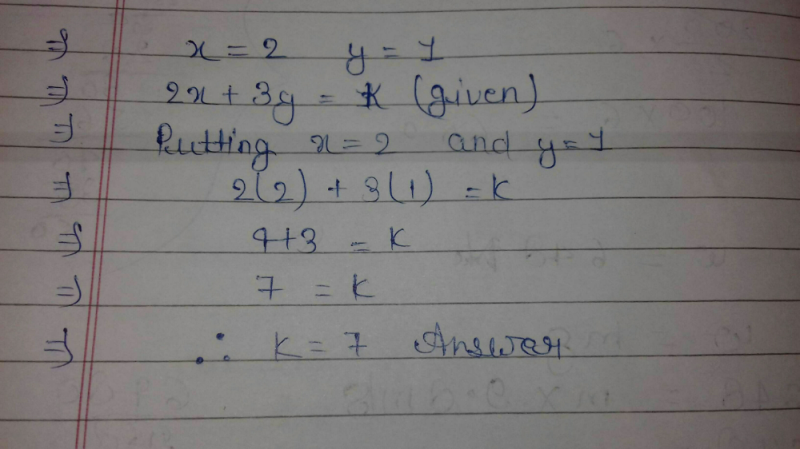 ⇒ x = 2 y = 1
⇒ 2x + 3y = K (given)
⇒ Putting x = 2 and y = 1
⇒ 2(2) + 3(1) = K
⇒ 4+3 = K
⇒ 7 = K
⇒ ∴ K = 7 Answer